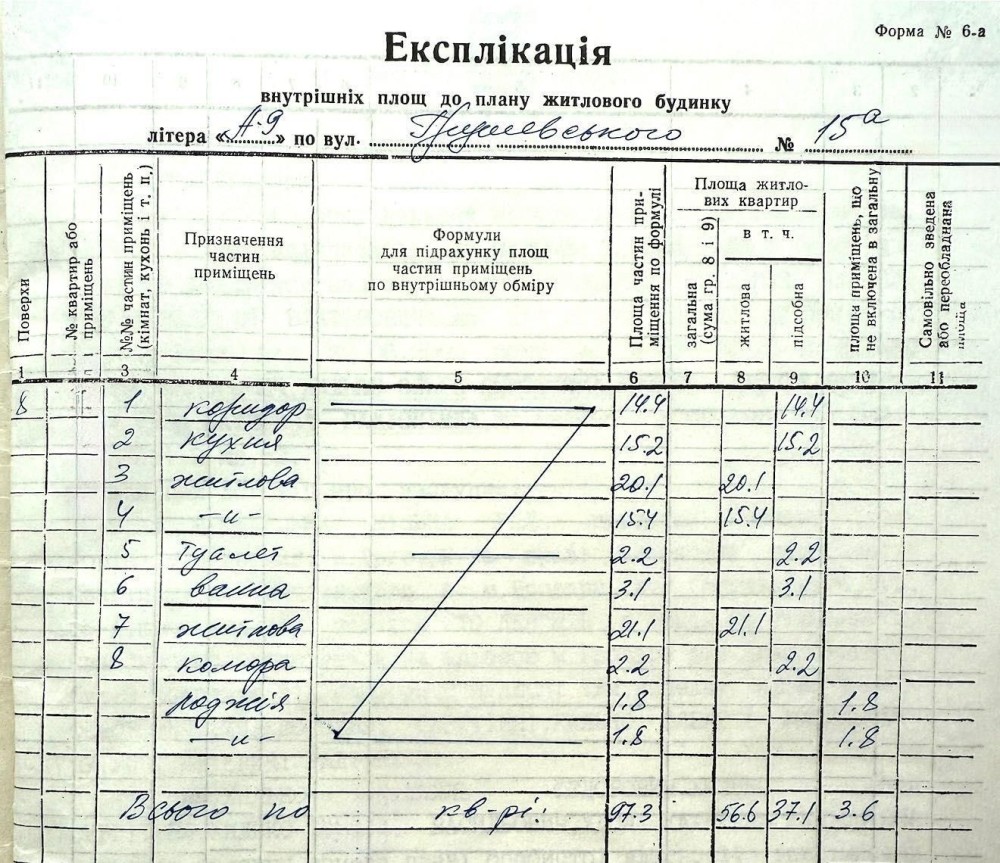 Форма № 6-а
Експлікація
внутрішніх площ до плану житлового будинку
літера «А-9» по вул. № 15а
Поверхи
№ квартир або приміщень
№№ частин приміщень (кімнат, кухонь і т. п.)
Призначення частин приміщень
Формули для підрахунку площ частин приміщень по внутрішньому обміру
Площа частин приміщення по формулі
Площа житлових квартир
загальна (сума гр. 8 і 9)
в т. ч.
житлова
підсобна
площа приміщень, що не включена в загальну
Самовільно зведена або переобладнана площа
1 3 4 5 6 7 8 9 10 11
8 1 коридор 14.4 14.4
2 кухня 15.2 15.2
3 житлова 20.1 20.1
4 —и— 15.4 15.4
5 туалет 2.2 2.2
6 ванна 3.1 3.1
7 житлова 21.1 21.1
8 комора 2.2 2.2
лоджія 1.8 1.8
—и— 1.8 1.8
Всього по кв-рі: 97.3 56.6 37.1 3.6